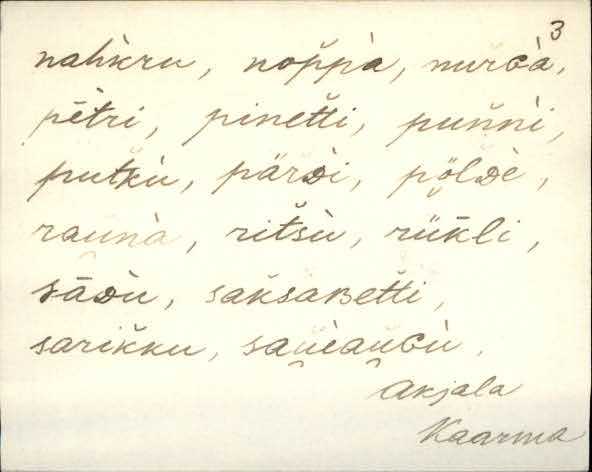 3
nahk̀ru, nop̆pà, nurɢà,
pētri, pinet̆ti, pun̆nì,
put̆kù, pärᴅì, pö̬lᴅè,
rau̯nà, rit̆sù, rük̄li,
sāᴅù, sak̆saʙet̆ti,
sarik̆ku, sau̯èau̯ɢù.
Akjala
Kaarma